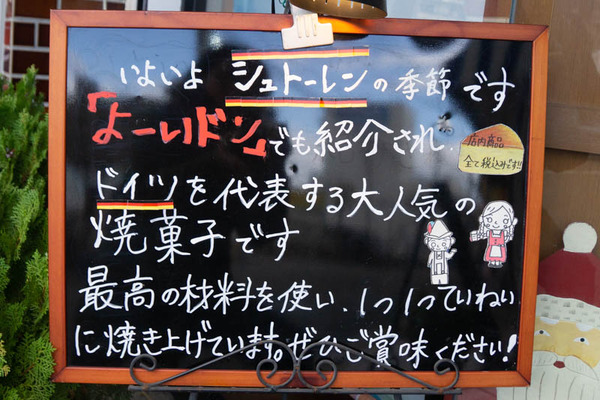 いよいよ シュトーレンの季節です
「よーいドン」でも紹介され、
店内商品
全て税込みです!!
ドイツを代表する大人気の
焼菓子です
最高の材料を使い、1つ1つていねい
に焼き上げています。ぜひご賞味ください!